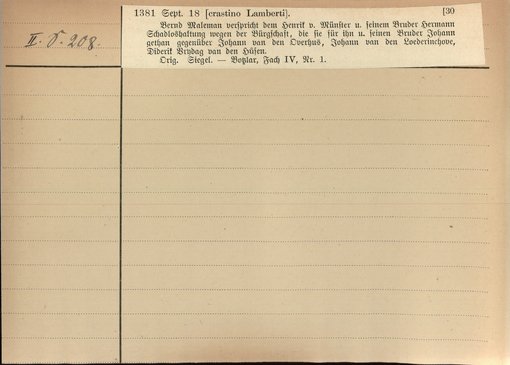 II. S. 208.
1381 Sept. 18 [crastino Lamberti]. [30
Bernd Maleman verspricht dem Henrik v. Münster u. seinem Bruder Hermann
Schadloshaltung wegen der Bürgschaft, die sie für ihn u. seinen Bruder Johann
gethan gegenüber Johann van den Overhus, Johann van den Loederinchove,
Diderik Brydag van den Hüsen.
Orig. Siegel. — Botzlar, Fach IV, Nr. 1.